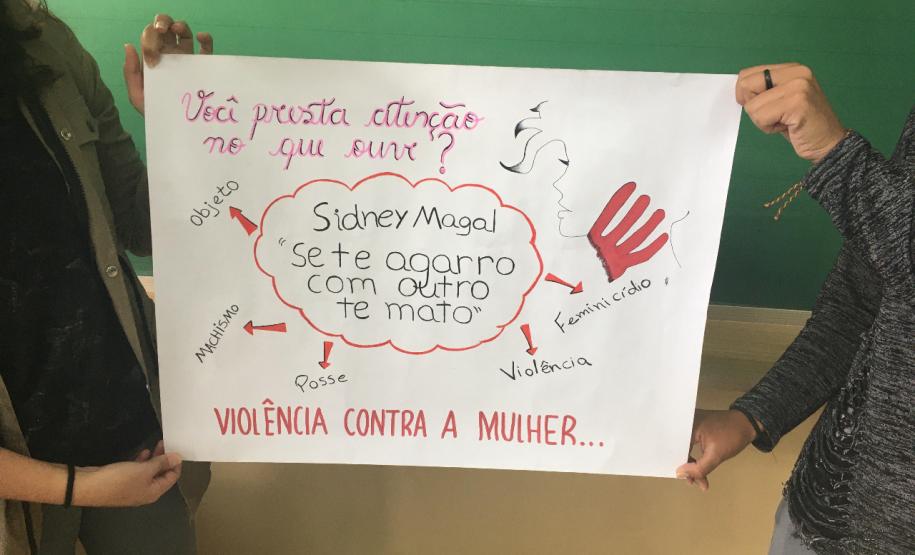 Você presta atenção
no que ouve?
Objeto
Sidney Magal
"Se te agarro
com outro
te mato"
Feminicídio
MACHISMO
Violência
Posse
VIOLÊNCIA CONTRA A MULHER...